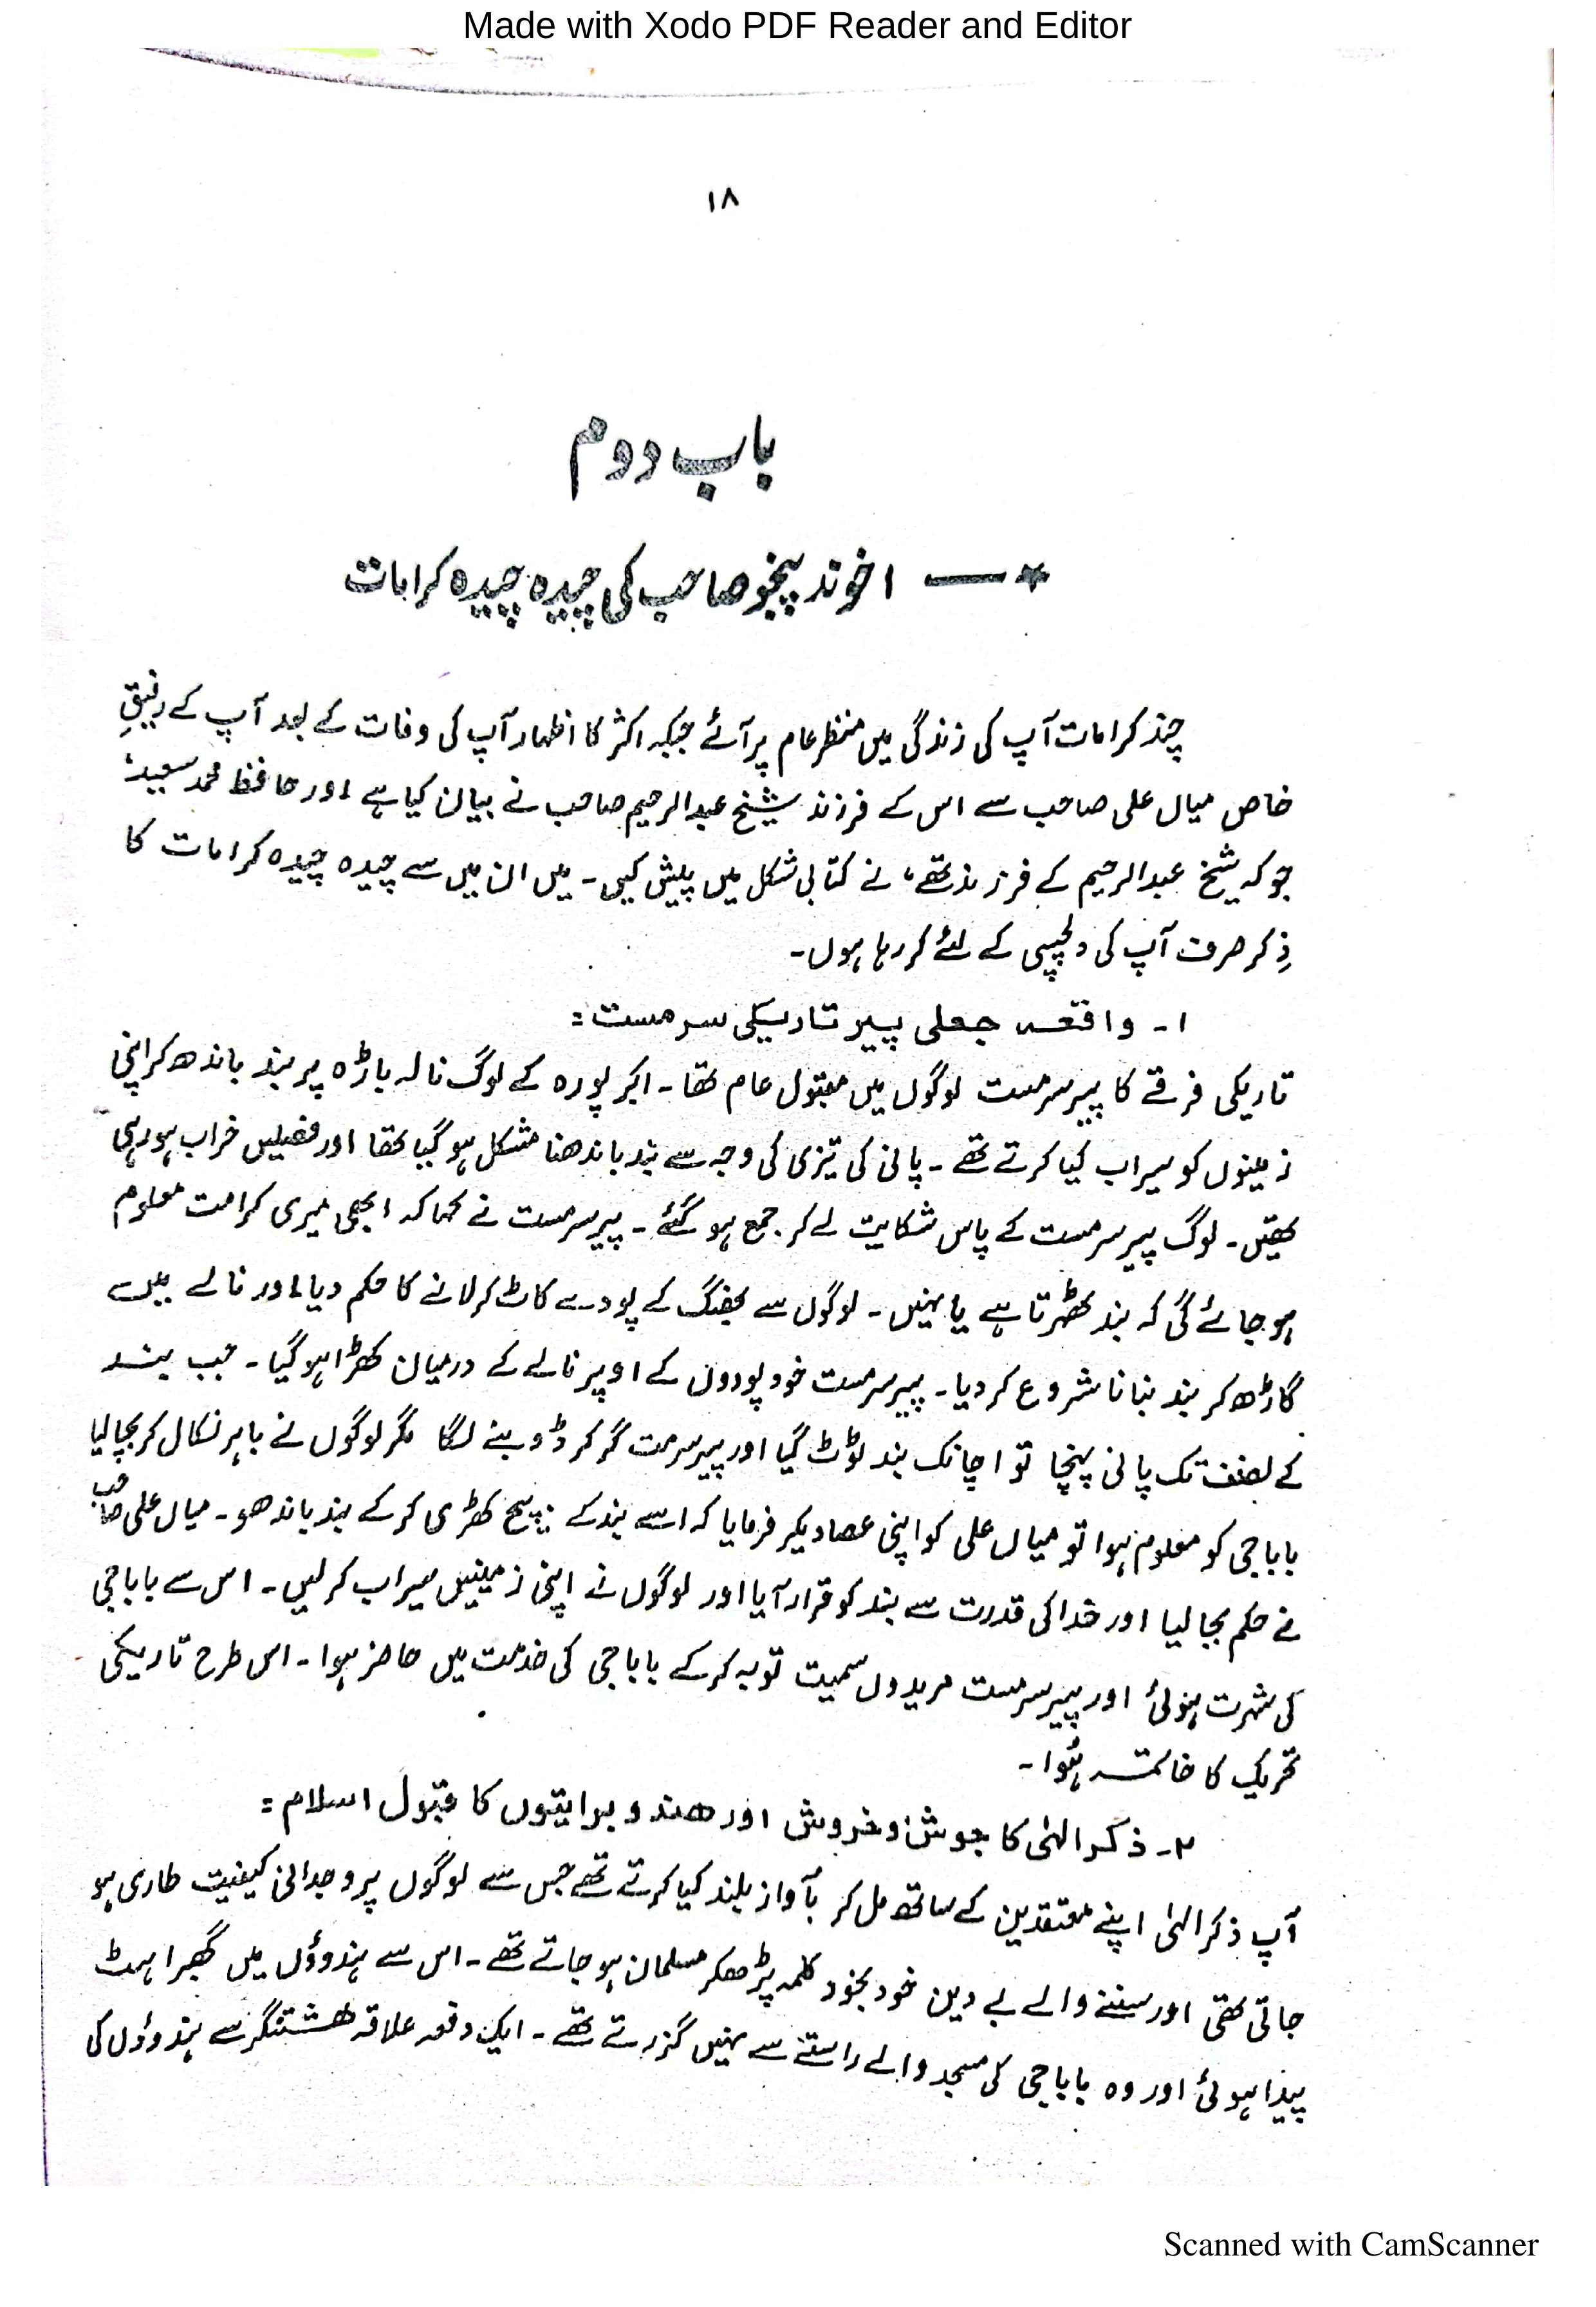 Made with Xodo PDF Reader and Editor
۱۸
باب دوم
* — اخوند پنجو صاحب کی چیدہ چیدہ کرامات
چند کرامات آپ کی زندگی میں منظر عام پر آئے جبکہ اکثر کا اظہار آپ کی وفات کے بعد آپ کے رفیقِ
خاص میاں علی صاحب سے اس کے فرزند شیخ عبدالرحیم صاحب نے بیان کیا ہے اور حافظ محمد سعیدؒ
جو کہ شیخ عبدالرحیم کے فرزند تھے، نے کتابی شکل میں پیش کیں۔ میں ان میں سے چیدہ چیدہ کرامات کا
ذِکر صرف آپ کی دلچسپی کے لئے کر رہا ہوں۔
۱۔ واقعہ جعلی پیر تاریکی سرمست:
تاریکی فرقے کا پیر سرمست لوگوں میں مقبول عام تھا۔ اکبر پورہ کے لوگ نالہ باڑہ پر بند باندھ کر اپنی
زمینوں کو سیراب کیا کرتے تھے۔ پانی کی تیزی کی وجہ سے بند باندھنا مشکل ہو گیا تھا اور فصلیں خراب ہو رہی
تھیں۔ لوگ پیر سرمست کے پاس شکایت لے کر جمع ہو گئے۔ پیر سرمست نے کہا کہ ابھی میری کرامت معلوم
ہو جائے گی کہ بند ٹھہرتا ہے یا نہیں۔ لوگوں سے بھنگ کے پودے کاٹ کر لانے کا حکم دیا اور نالے میں
گاڑھ کر بند بنانا شروع کر دیا۔ پیر سرمست خود پودوں کے اوپر نالے کے درمیان کھڑا ہو گیا۔ جب بند
کے نصف تک پانی پہنچا تو اچانک بند ٹوٹ گیا اور پیر سرمست گر کر ڈوبنے لگا مگر لوگوں نے باہر نکال کر بچا لیا
بابا جی کو معلوم ہوا تو میاں علی کو اپنی عصا دیکر فرمایا کہ اسے بند کے بیچ کھڑی کر کے بند باندھو۔ میاں علی صاحب
نے حکم بجا لیا اور خدا کی قدرت سے بند کو قرار آیا اور لوگوں نے اپنی زمینیں سیراب کر لیں۔ اس سے بابا جی
کی شہرت ہوئی اور پیر سرمست مریدوں سمیت توبہ کر کے بابا جی کی خدمت میں حاضر ہوا۔ اس طرح تاریکی
تحریک کا خاتمہ ہُوا۔
۲۔ ذکر الہٰی کا جوش و خروش اور ھندو براتیوں کا قبول اسلام:
آپ ذکر الہٰی اپنے معتقدین کے ساتھ مل کر بآواز بلند کیا کرتے تھے جس سے لوگوں پر وجدانی کیفیت طاری ہو
جاتی تھی اور سننے والے بے دین خود بخود کلمہ پڑھکر مسلمان ہو جاتے تھے۔ اس سے ہندوؤں میں گھبراہٹ
پیدا ہوئی اور وہ بابا جی کی مسجد والے راستے سے نہیں گزرتے تھے۔ ایک دفعہ علاقہ ھشتنگر سے ہندوؤں کی
Scanned with CamScanner